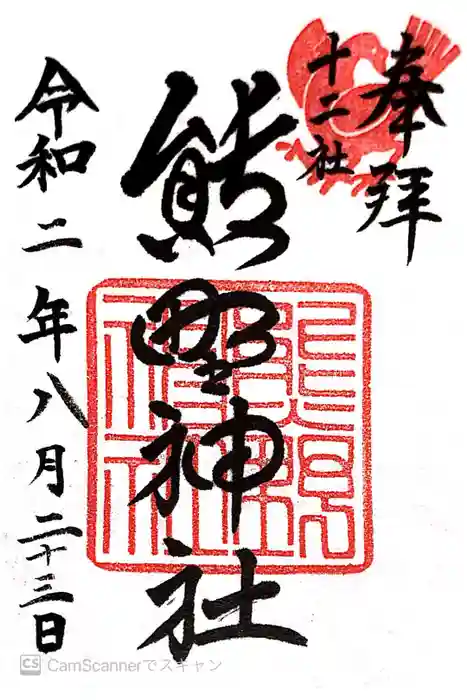 奉拝
十二社
熊野神社
令和二年八月二十三日
CS CamScannerでスキャン